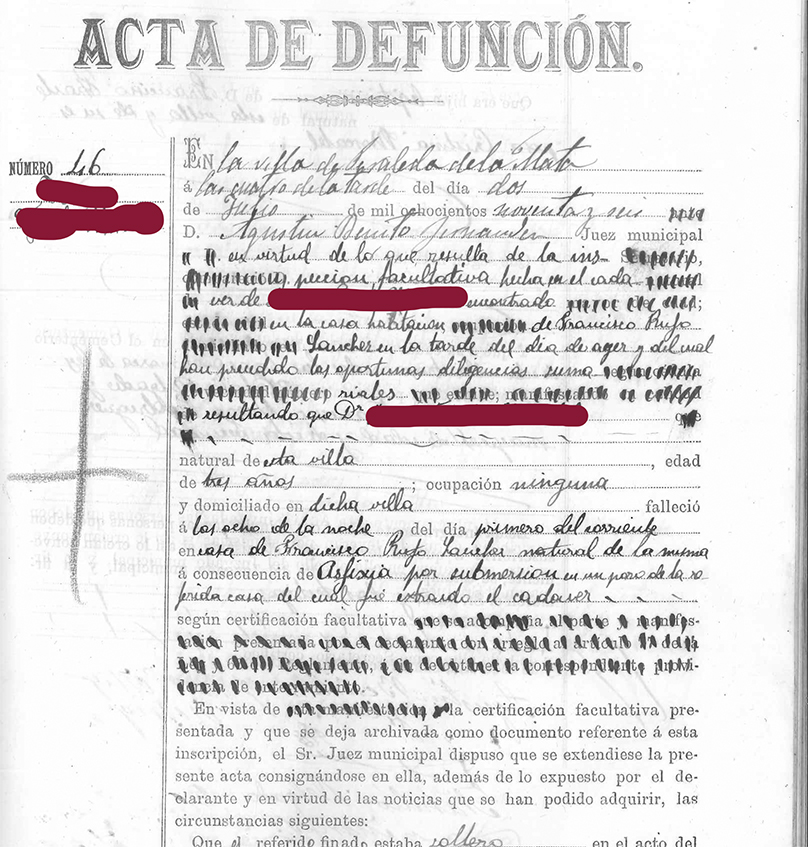 ACTA DE DEFUNCIÓN.
NÚMERO 46
EN la villa de Peraleda de la Mata
á las cuatro de la tarde del día dos
de Junio de mil ochocientos noventa y seis
D. Agustin Benito Fernandez Juez municipal
en virtud de lo que resulta de la ins-
peccion facultativa hecha en el cada
ver de encontrado
en la casa habitacion de Francisco Rufo
Sanchez en la tarde del dia de ayer y del cual
han precedido las oportunas diligencias suma
riales
resultando que Dª que
natural de esta villa, edad
de tres años; ocupación ninguna
y domiciliado en dicha villa falleció
á las ocho de la noche del día primero del corriente
en casa de Francisco Rufo Sanchez natural de la misma
á consecuencia de Asfixia por submersion en un pozo de la re
ferida casa del cual fué extraido el cadaver
según certificación facultativa
En vista de la certificación facultativa pre-
sentada y que se deja archivada como documento referente á esta
inscripción, el Sr. Juez municipal dispuso que se extendiese la pre-
sente acta consignándose en ella, además de lo expuesto por el de-
clarante y en virtud de las noticias que se han podido adquirir, las
circunstancias siguientes:
Que el referido finado estaba soltero en el acto del